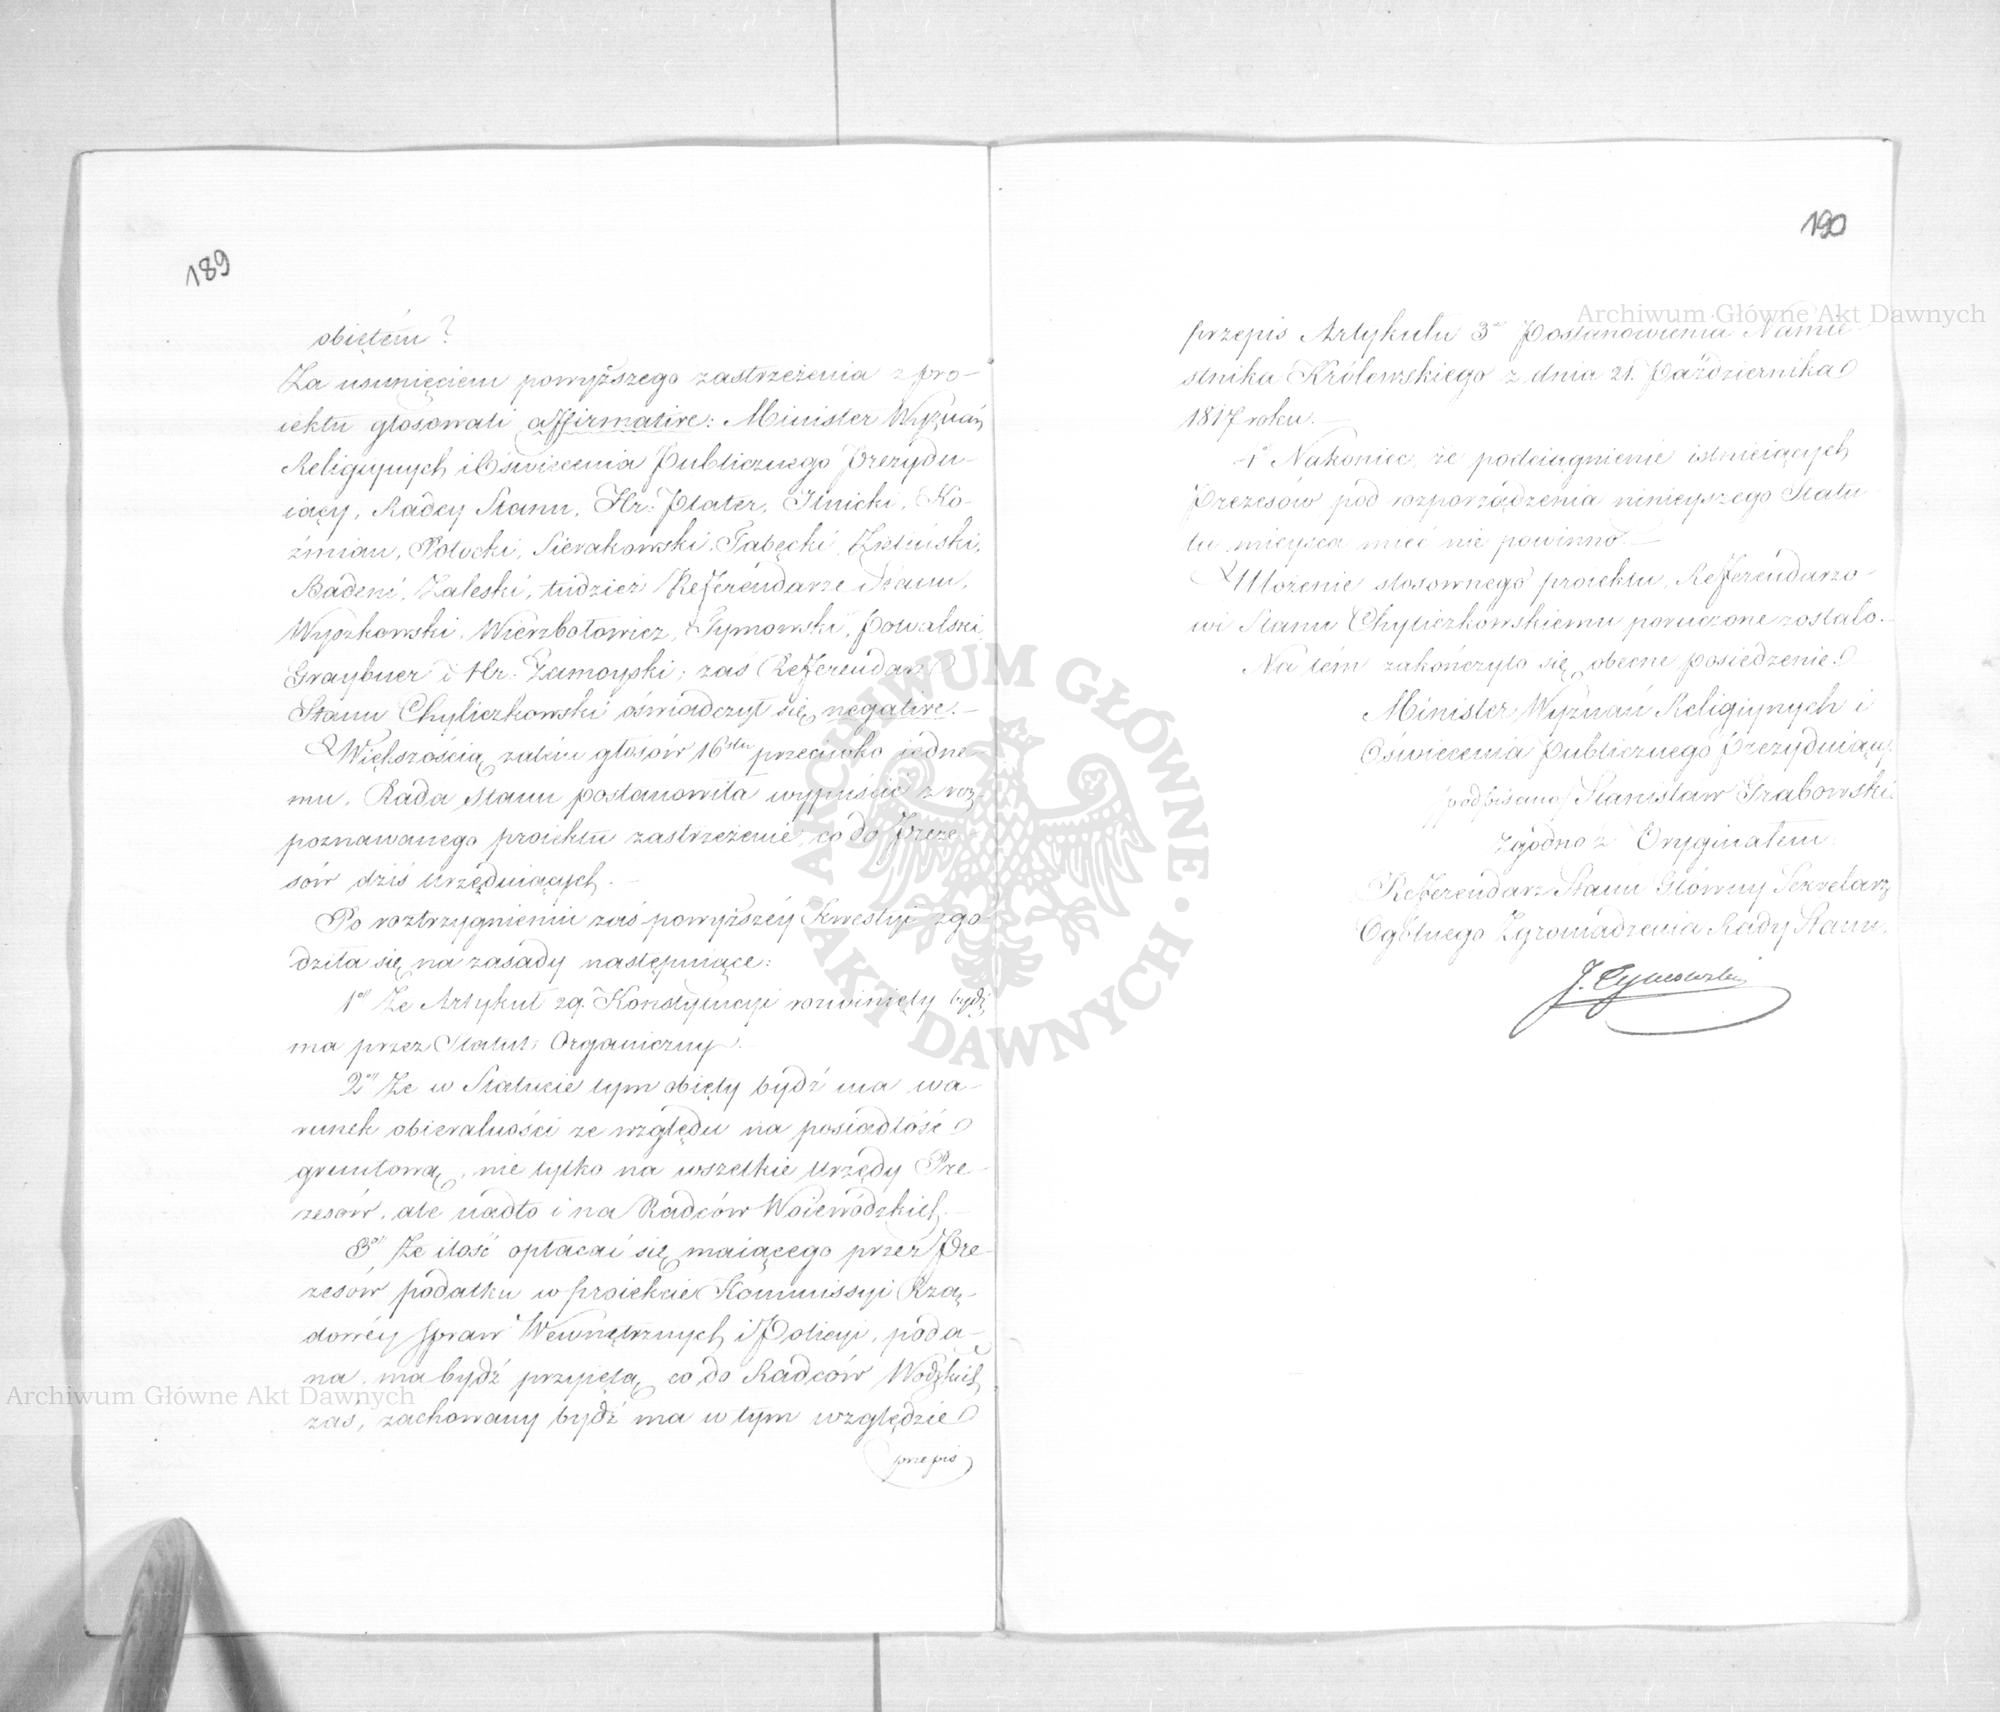 189
obiętém?
Za usunięciem powyższego zastrzeżenia z pro-
iektu głosowali affirmative: Minister Wyznań
Religiynych i Oświecenia Publicznego Prezydu-
iący, Radcy Stanu, Hr: Plater, Ilnicki, Ko-
źmian, Potocki, Sierakowski, Tabęcki, Zieliński,
Badeni, Zaleski, tudzież Referendarze Stanu,
Wyszkowski, Wierzbołowicz, Tymowski, Powalski,
Graybner i Hr: Zamoyski; zaś Referendarz
Stanu Chyliczkowski oświadczył się negative.-
Większością zatém głosów 16stu przeciwko iedne-
mu, Rada Stanu postanowiła wypuścić z roz-
poznawanego proiektu zastrzeżenie, co do Preze-
sów dziś urzęduiących.-
Po roztrzygnieniu zaś powyższéy Kwestyi zgo-
dziła się na zasady następuiące:
1o Ze Artykuł 29. Konstytucyi rozwinięty bydź
ma przez Statut Organiczny.-
2o Ze w Statucie tym obięty bydź ma wa-
runek obieralności ze względu na posiadłość
gruntową, nie tylko na wszelkie Urzędy Pre-
zesów, ale nadto i na Radców Woiewódzkich.-
3o Ze ilość opłacać się maiącego przez Pre-
zesów podatku w proiekcie Kommissyi Rzą-
dowéy Spraw Wewnętrznych i Policyi, poda-
na, ma bydź przyięta, co do Radców Wodzkich
zaś, zachowany bydź ma w tym względzie
przepis
190
przepis Artykułu 3o Postanowienia Namie-
stnika Królewskiego z dnia 21. Października
1817 roku.-
4o Nakoniec, że podciągnienie istnieiących
Prezesów pod rozporządzenia ninieyszego Statu-
tu mieysca mieć nie powinno.-
Ułożenie stosownego proiektu, Referendarzo-
wi Stanu Chyliczkowskiemu poruczone zostało.-
Na tém zakończyło się obecne posiedzenie.
Minister Wyznań Religiynych i
Oświecenia Publicznego Prezyduiący
/podpisano/ Stanisław Grabowski.
Zgodno z Oryginałem:
Referendarz Stanu Główny Sekretarz
Ogólnego Zgromadzenia Rady Stanu.
J. Tymowski
Archiwum Główne Akt Dawnych
Archiwum Główne Akt Dawnych
ARCHIWUM GŁÓWNE · AKT DAWNYCH ·